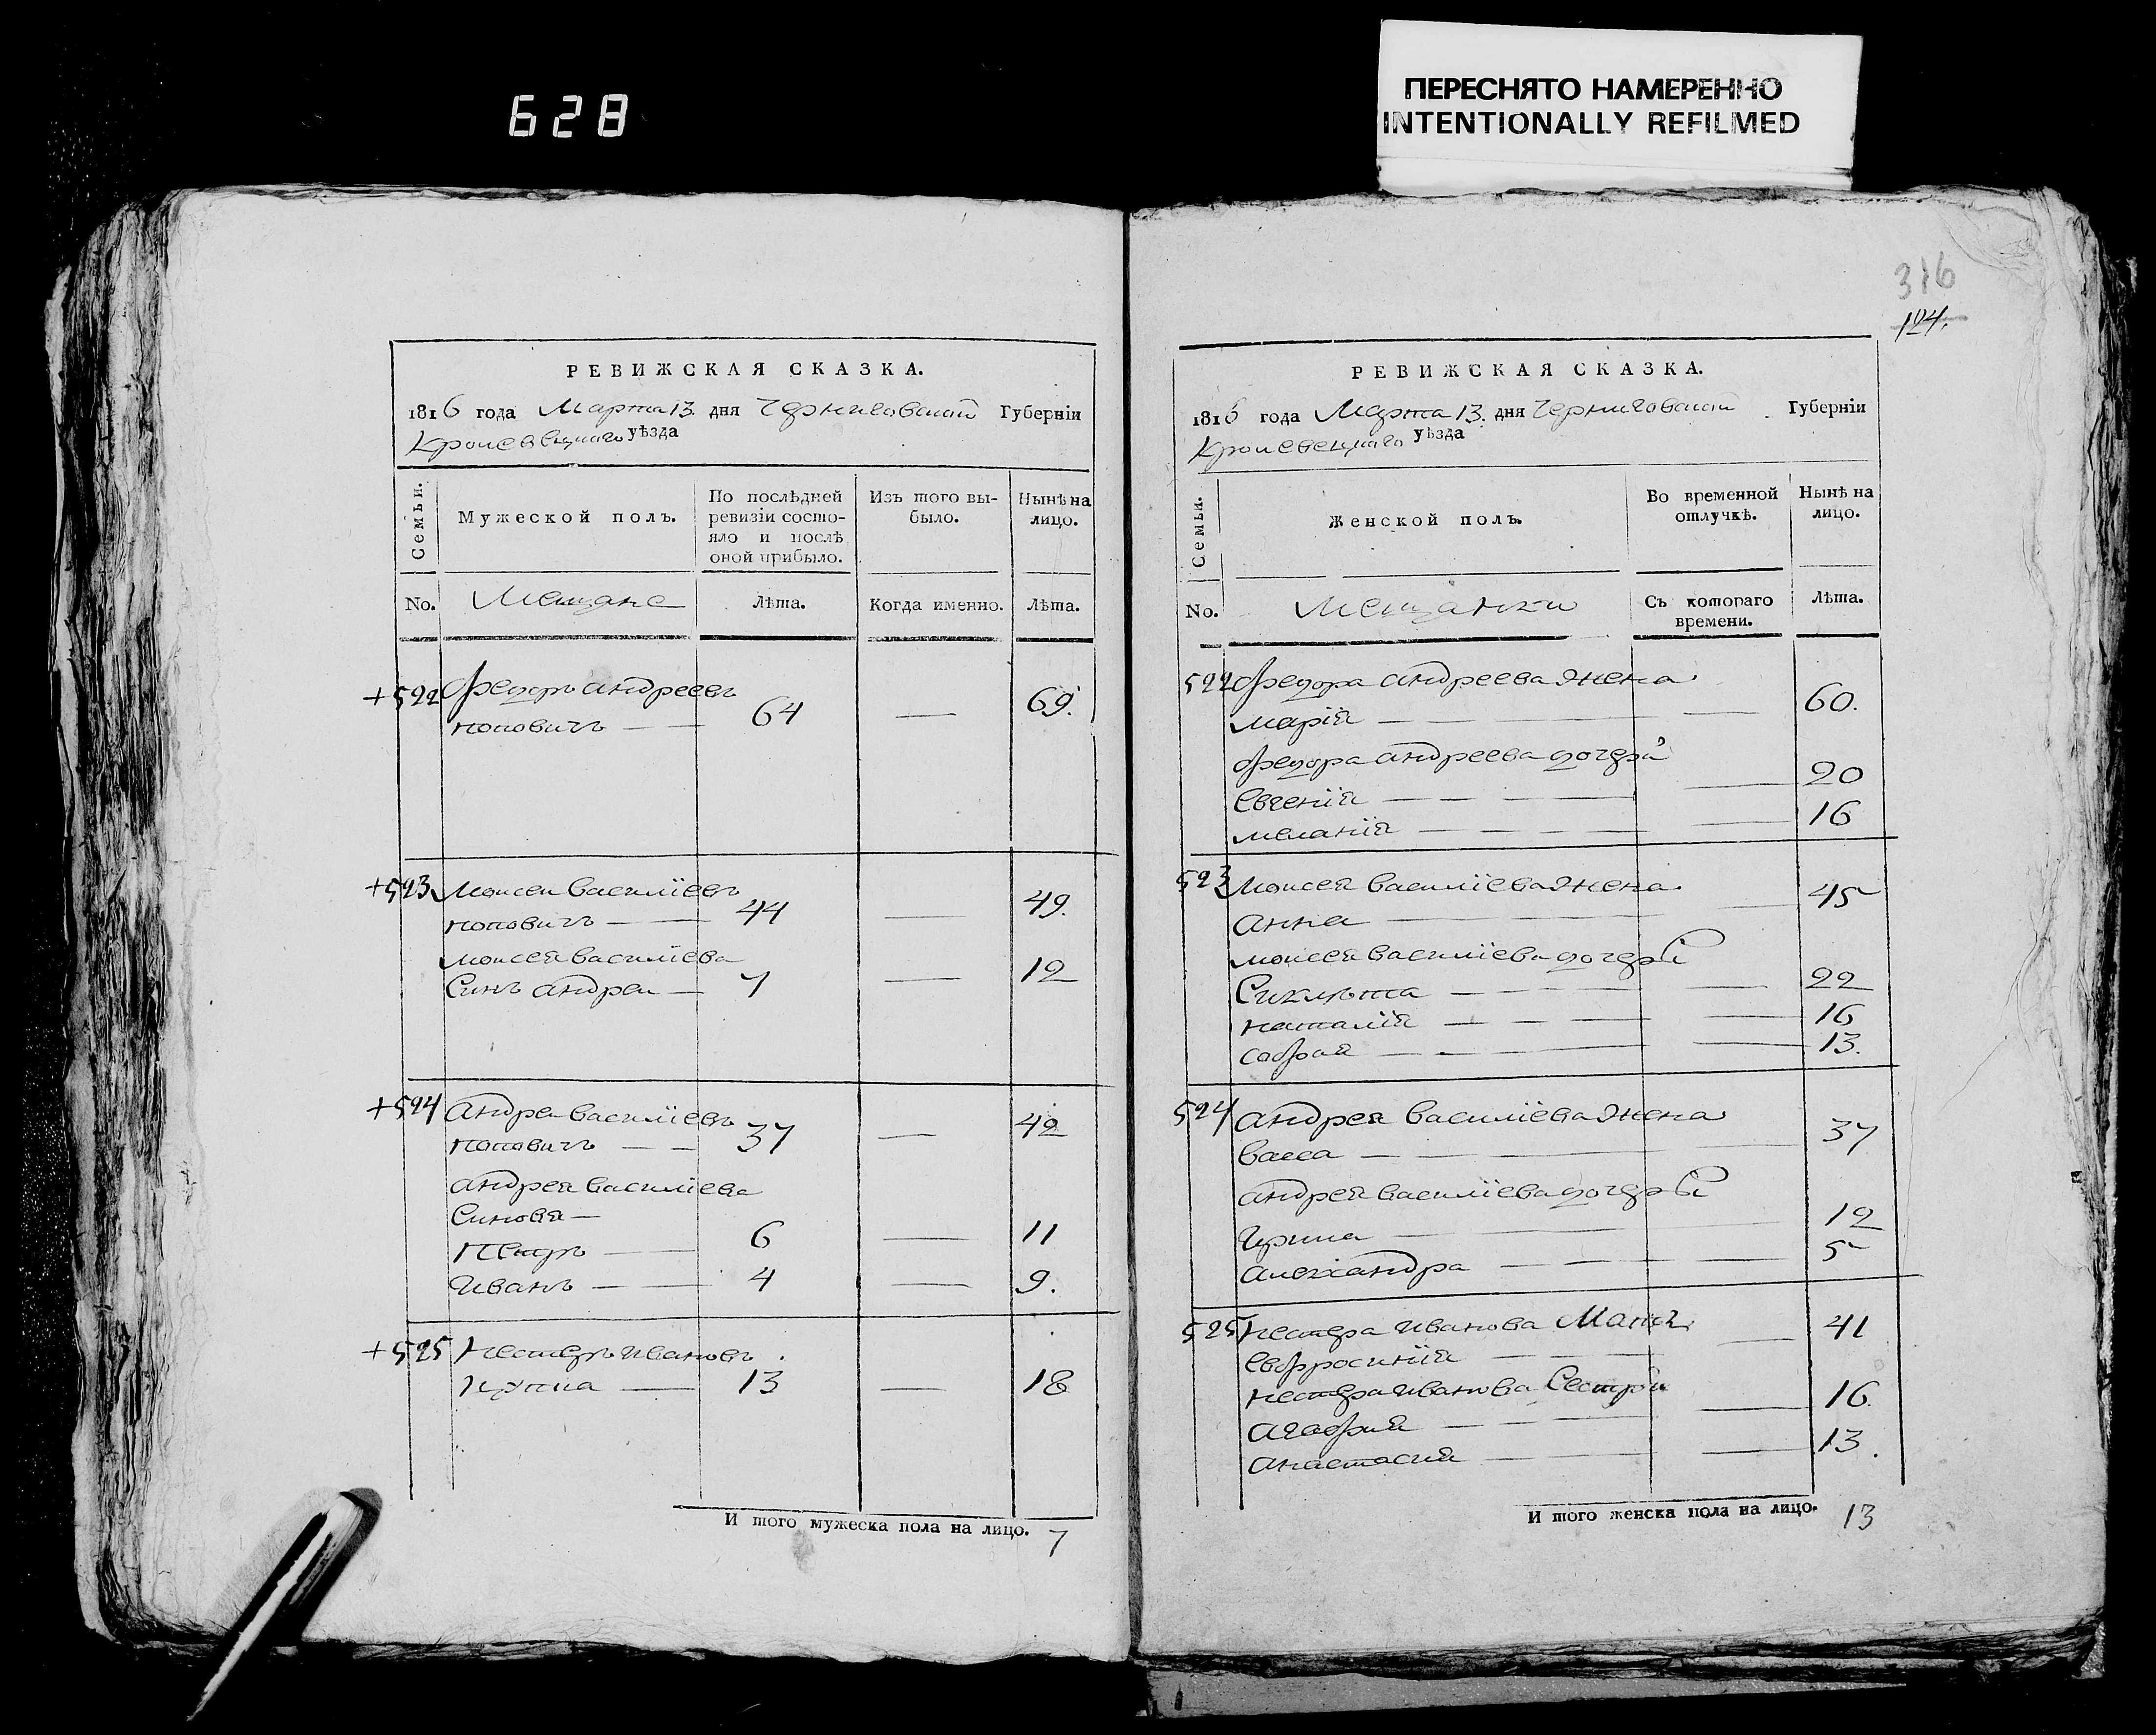 628
ПЕРЕСНЯТО НАМЕРЕННО
INTENTIONALLY REFILMED
РЕВИЖСКАЯ СКАЗКА.
1816 года Марта 13. дня Черниговской Губерніи
Кролевецкаго уѣзда
Семьи.
Мужеской полъ.
По послѣдней ревизіи состояло и послѣ оной прибыло.
Изъ того выбыло.
Нынѣ на лицо.
No.
Мещане
Лѣта.
Когда именно.
Лѣта.
+522 Федоръ андреевъ
поповичъ — 64 — 69.
+523 Моисеи василіевъ
поповичъ — 44 — 49.
моисея василіева
Синъ андреи — 7 — 12
+524 андреи василіевъ
поповичъ — — 37 — 42
андрея василіева
Синовя —
Петръ — 6 — 11
иванъ — 4 — 9.
+525 Нестеръ ивановъ
— 13 — 18
И того мужеска пола на лицо. 7
316
124.
РЕВИЖСКАЯ СКАЗКА.
1816 года Марта 13. дня Черниговской Губерніи
Кролевецкаго уѣзда
Семьи.
Женской полъ.
Во временной отлучкѣ.
Нынѣ на лицо.
No.
мещанки
Съ котораго времени.
Лѣта.
522 Федора андреева жена
марія — — — 60.
Федора андреева дочери
Евгенія — — — 20
меланія — — — — 16
523 Моисея василіева жена
анна — — — 45
моисея василіева дочери
Сиклѣта — — — 22
наталія — — — — 16
софия — — — — 13.
524 андрея василіева жена
васса — — — 37
андрея василіева дочери
ирина — — — 12
александра — — — — 5
525 нестера иванова Мати
евфросинія — — — 41
нестера иванова Сестри
агафия — — — 16.
анастасия — — — 13.
И того женска пола на лицо. 13